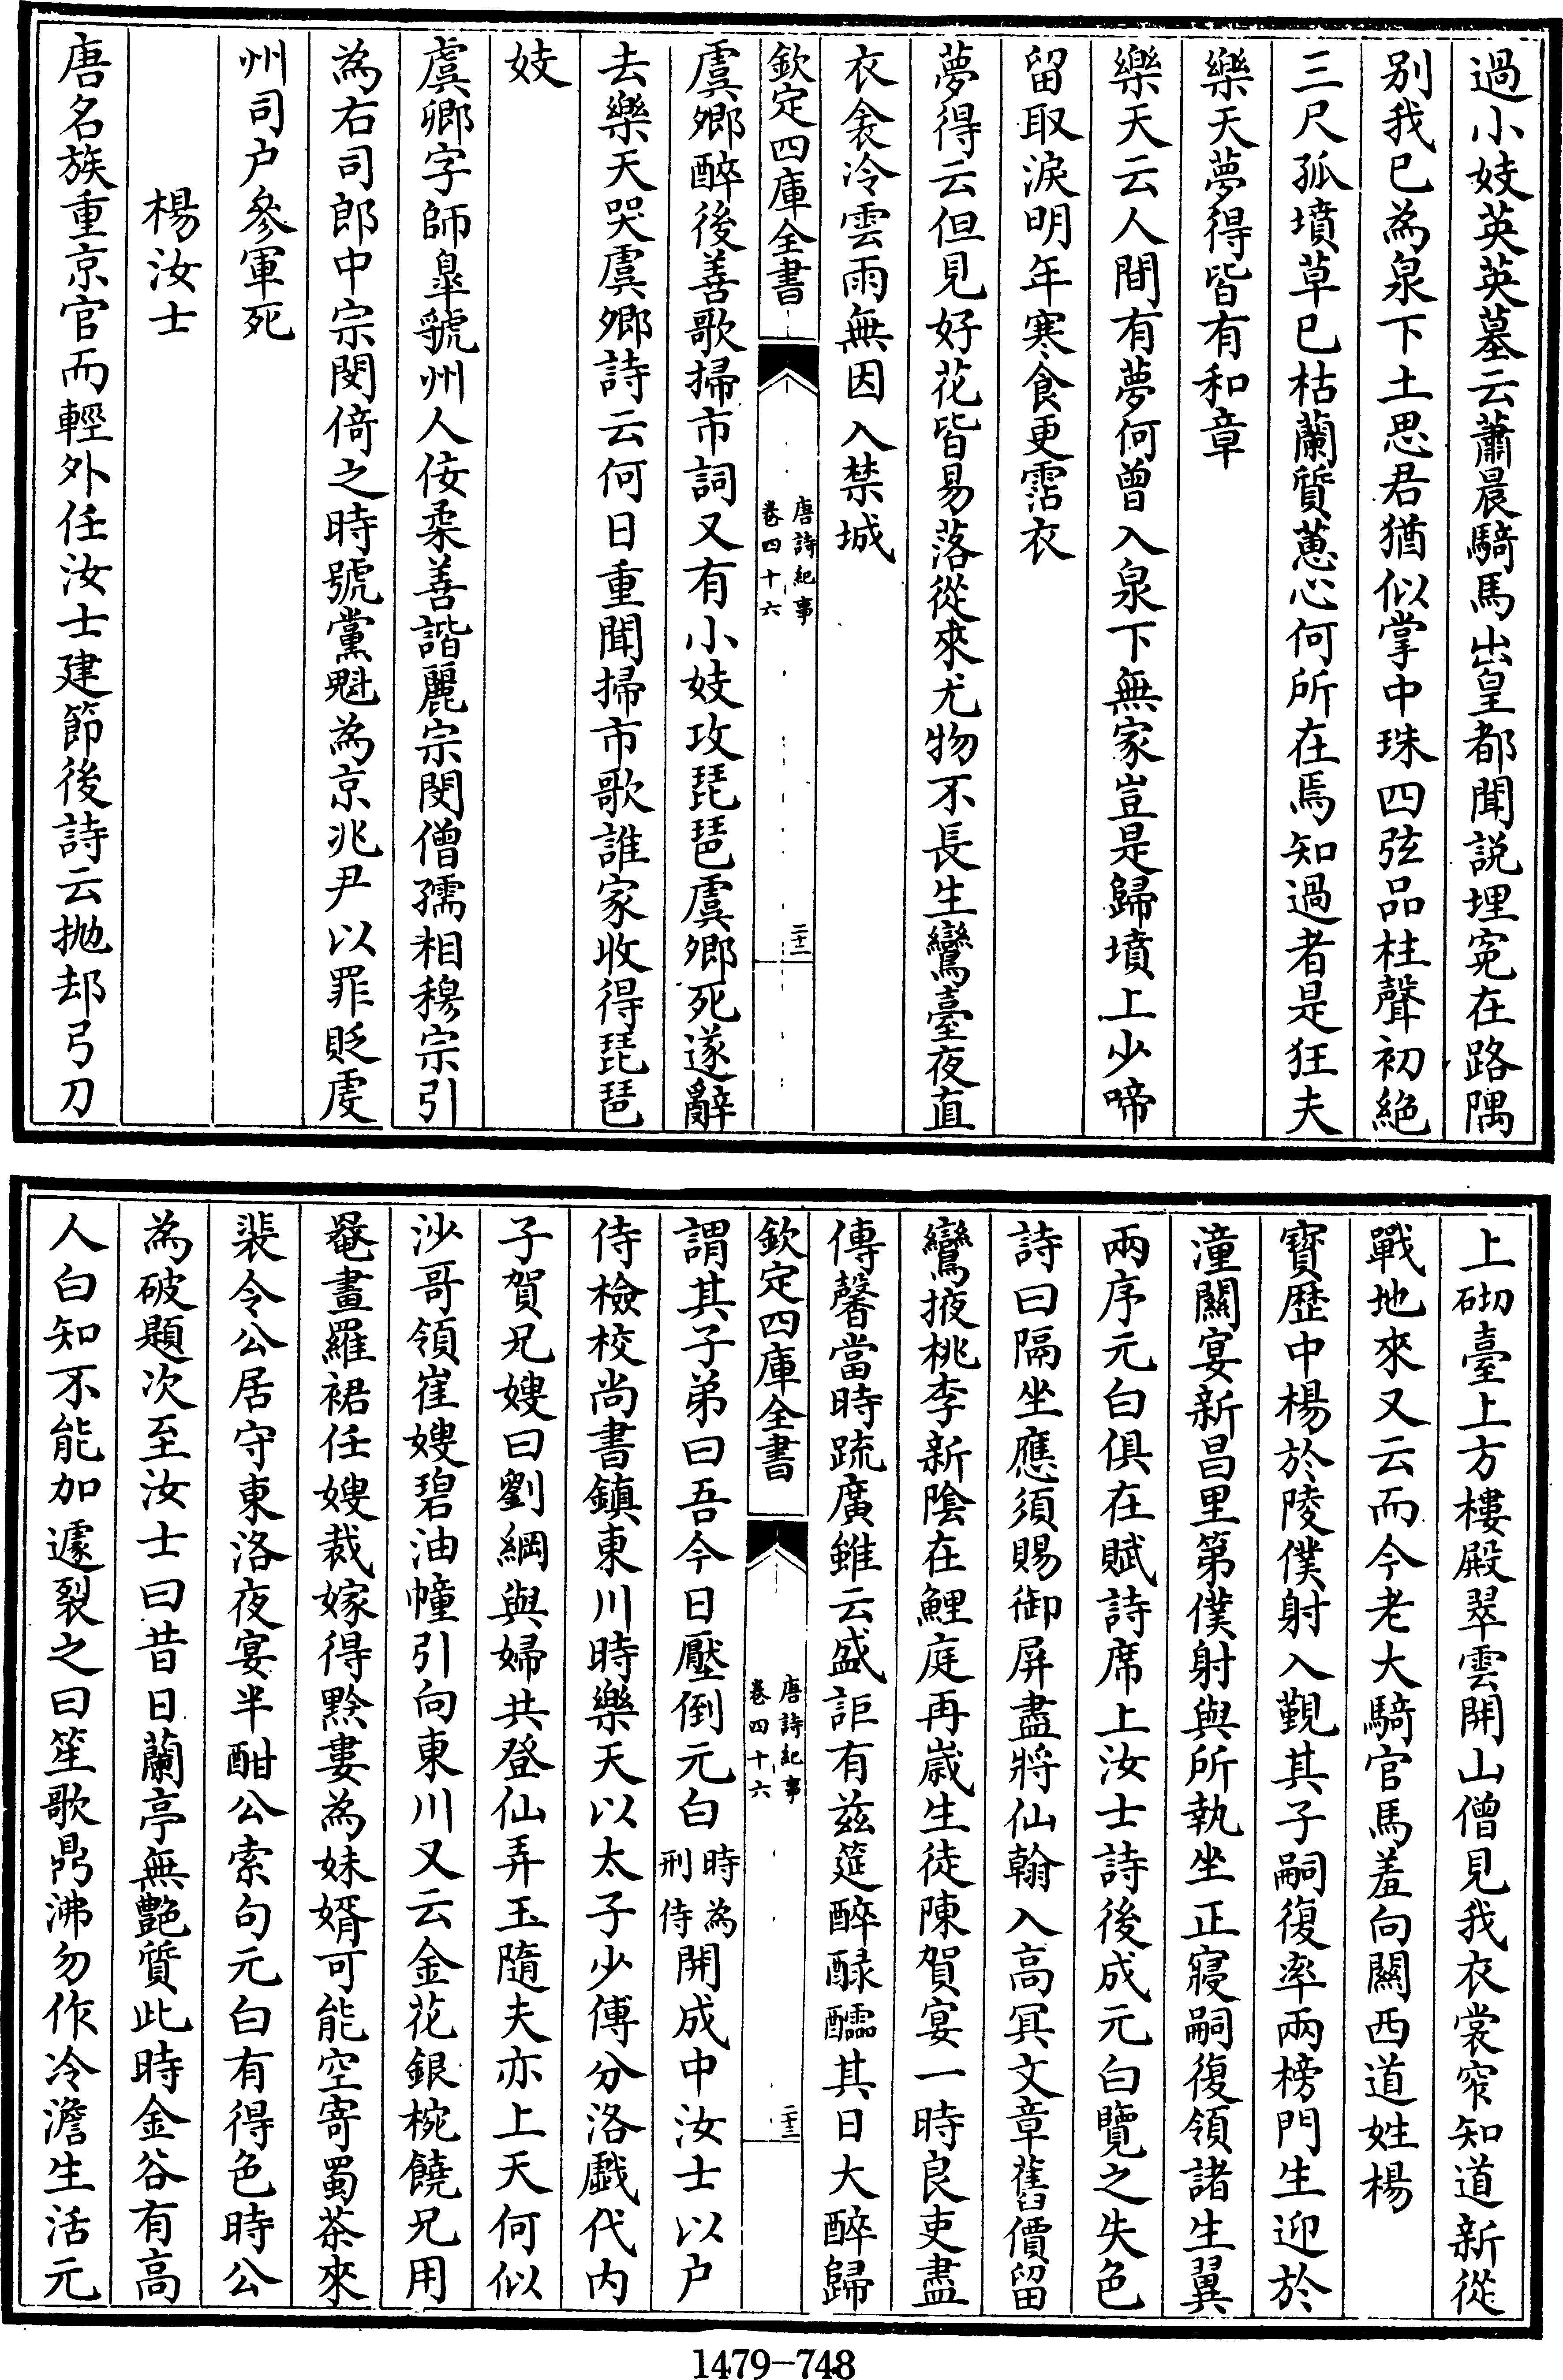 過小妓英英墓云蕭晨騎馬出皇都聞説埋寃在路隅
别我已為泉下土思君猶似掌中珠四弦品柱聲初絶
三尺孤墳草已枯蘭質蕙心何所在焉知過者是狂夫
樂天夢得皆有和章
樂天云人間有夢何曾入泉下無家豈是歸墳上少啼
留取淚明年寒食更霑衣
夢得云但見好花皆易落從來尤物不長生鸞臺夜直
衣衾冷雲雨無因入禁城
欽定四庫全書
唐詩紀事
卷四十六
二十二
虞卿醉後善歌掃市詞又有小妓攻琵琶虞卿死遂辭
去樂天哭虞卿詩云何日重聞掃市歌誰家收得琵琶
妓
虞卿字師臯虢州人佞柔善諧麗宗閔僧孺相穆宗引
為右司郎中宗閔倚之時號黨魁為京兆尹以罪貶䖍
州司户參軍死
楊汝士
唐名族重京官而輕外任汝士建節後詩云抛却弓刀
上砌臺上方樓殿翠雲開山僧見我衣裳窄知道新從
戰地來又云而今老大騎官馬羞向關西道姓楊
寳歴中楊於陵僕射入觀其子嗣復率兩榜門生迎於
潼關宴新昌里第僕射與所執坐正寢嗣復領諸生翼
兩序元白俱在賦詩席上汝士詩後成元白覽之失色
詩曰隔坐應須賜御屏盡將仙翰入高冥文章舊價留
鸞掖桃李新陰在鯉庭再歲生徒陳賀宴一時良吏盡
傳馨當時疏廣雖云盛詎有兹筵醉醁醹其日大醉歸
欽定四庫全書
唐詩紀事
卷四十六
二十三
謂其子弟曰吾今日壓倒元白時為刑侍開成中汝士以户
侍檢校尚書鎮東川時樂天以太子少傅分洛戲代内
子賀兄嫂曰劉綱與婦共登仙弄玉隨夫亦上天何似
沙哥領崔嫂碧油幢引向東川又云金花銀椀饒兄用
罨畫羅裙任嫂裁嫁得黔婁為妹婿可能空寄蜀茶來
裴令公居守東洛夜宴半酣公索句元白有得色時公
為破題次至汝士曰昔日蘭亭無艶質此時金谷有高
人白知不能加遽裂之曰笙歌鼎沸勿作冷澹生活元
1479-748